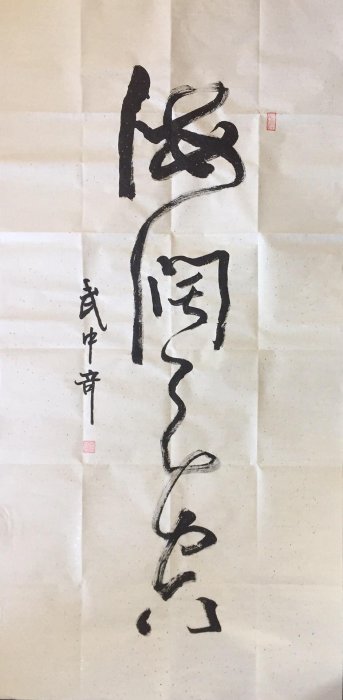 海阔天空
武中奇